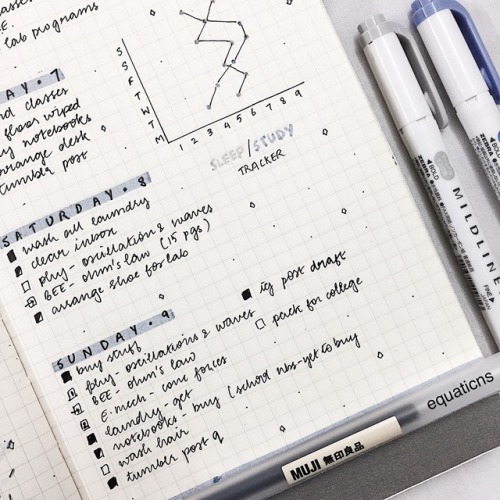 lab programs
AY. 7
classes
floor wiped
notebooks
arrange desk
tumblr post
S
S
F
T
W
T
M
1 2 3 4 5 6 7 8 9
SLEEP/STUDY
TRACKER
SATURDAY. 8
wash all laundry
clear inbox
phy- oscillations & waves
BEE- ohm's law (15 pgs)
arrange shoe for lab
SUNDAY. 9
buy stuff
phy- oscillations & waves
BEE- ohm's law
E.mech- conc forces
laundry- get
notebooks- buy (school nbs-yet to buy
wash hair
tumblr post q
ig post draft
pack for college
BOLD
ZEBRA
MILDLINER
FINE
BOLD
ZEBRA
equations
MUJI 無印良品